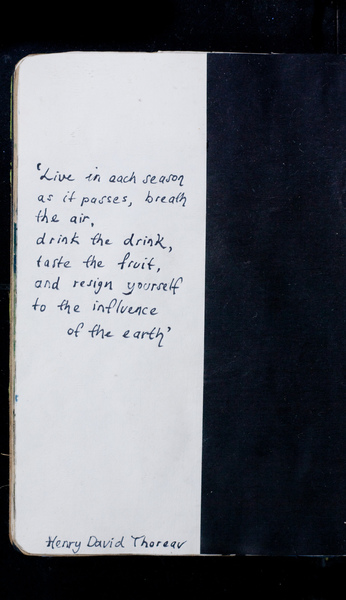 'Live in aach season
as it passes, breath
the air,
drink the drink,
taste the fruit,
and resign yourself
to the influence
of the earth'
Henry David Thoreau